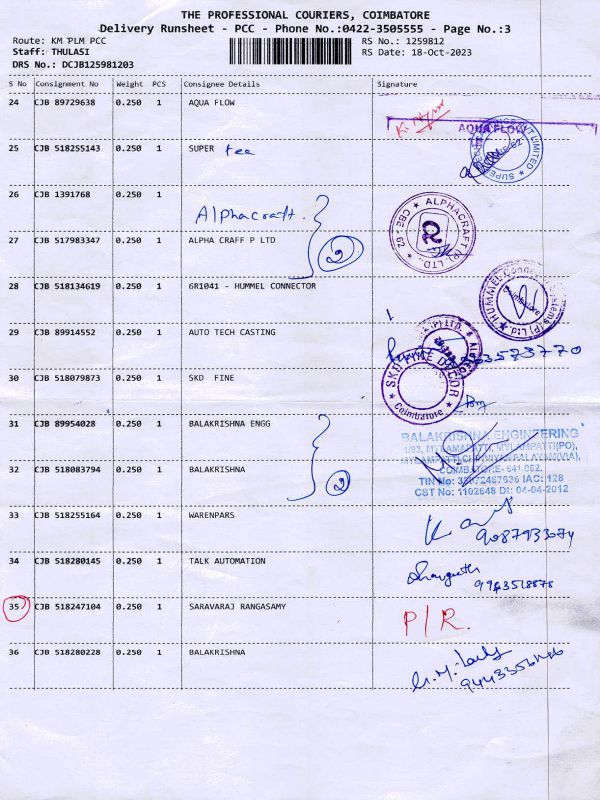 THE PROFESSIONAL COURIERS, COIMBATORE
Delivery Runsheet - PCC - Phone No.:0422-3505555 - Page No.:3
Route: KM PLM PCC
RS No.: 1259812
Staff: THULASI
RS Date: 18-Oct-2023
DRS No.: DCJB125981203
S No Consignment No Weight PCS Consignee Details Signature
24 CJB 89729638 0.250 1 AQUA FLOW
AQUA FLOW
25 CJB 518255143 0.250 1 SUPER tec
26 CJB 1391768 0.250 1
Alphacraft.
27 CJB 517983347 0.250 1 ALPHA CRAFF P LTD
2
ALPHACRAFT (P) LTD. CBE-62
28 CJB 518134619 0.250 1 6R1041 - HUMMEL CONNECTOR
HUMMEL Connector Systems (P) Ltd. Coimbatore
29 CJB 89914552 0.250 1 AUTO TECH CASTING
30 CJB 518079873 0.250 1 SKD FINE
Coimbatore
31 CJB 89954028 0.250 1 BALAKRISHNA ENGG
BALAKRISHNA ENGINEERING
1/93, MYLAMPATTI, MYLAMPATTI(PO),
COIMBATORE- 641 062.
32 CJB 518083794 0.250 1 BALAKRISHNA
2
CST No: 1102648 Dt: 04-04-2012
33 CJB 518255164 0.250 1 WARENPARS
34 CJB 518280145 0.250 1 TALK AUTOMATION
35 CJB 518247104 0.250 1 SARAVARAJ RANGASAMY
P/R.
36 CJB 518280228 0.250 1 BALAKRISHNA